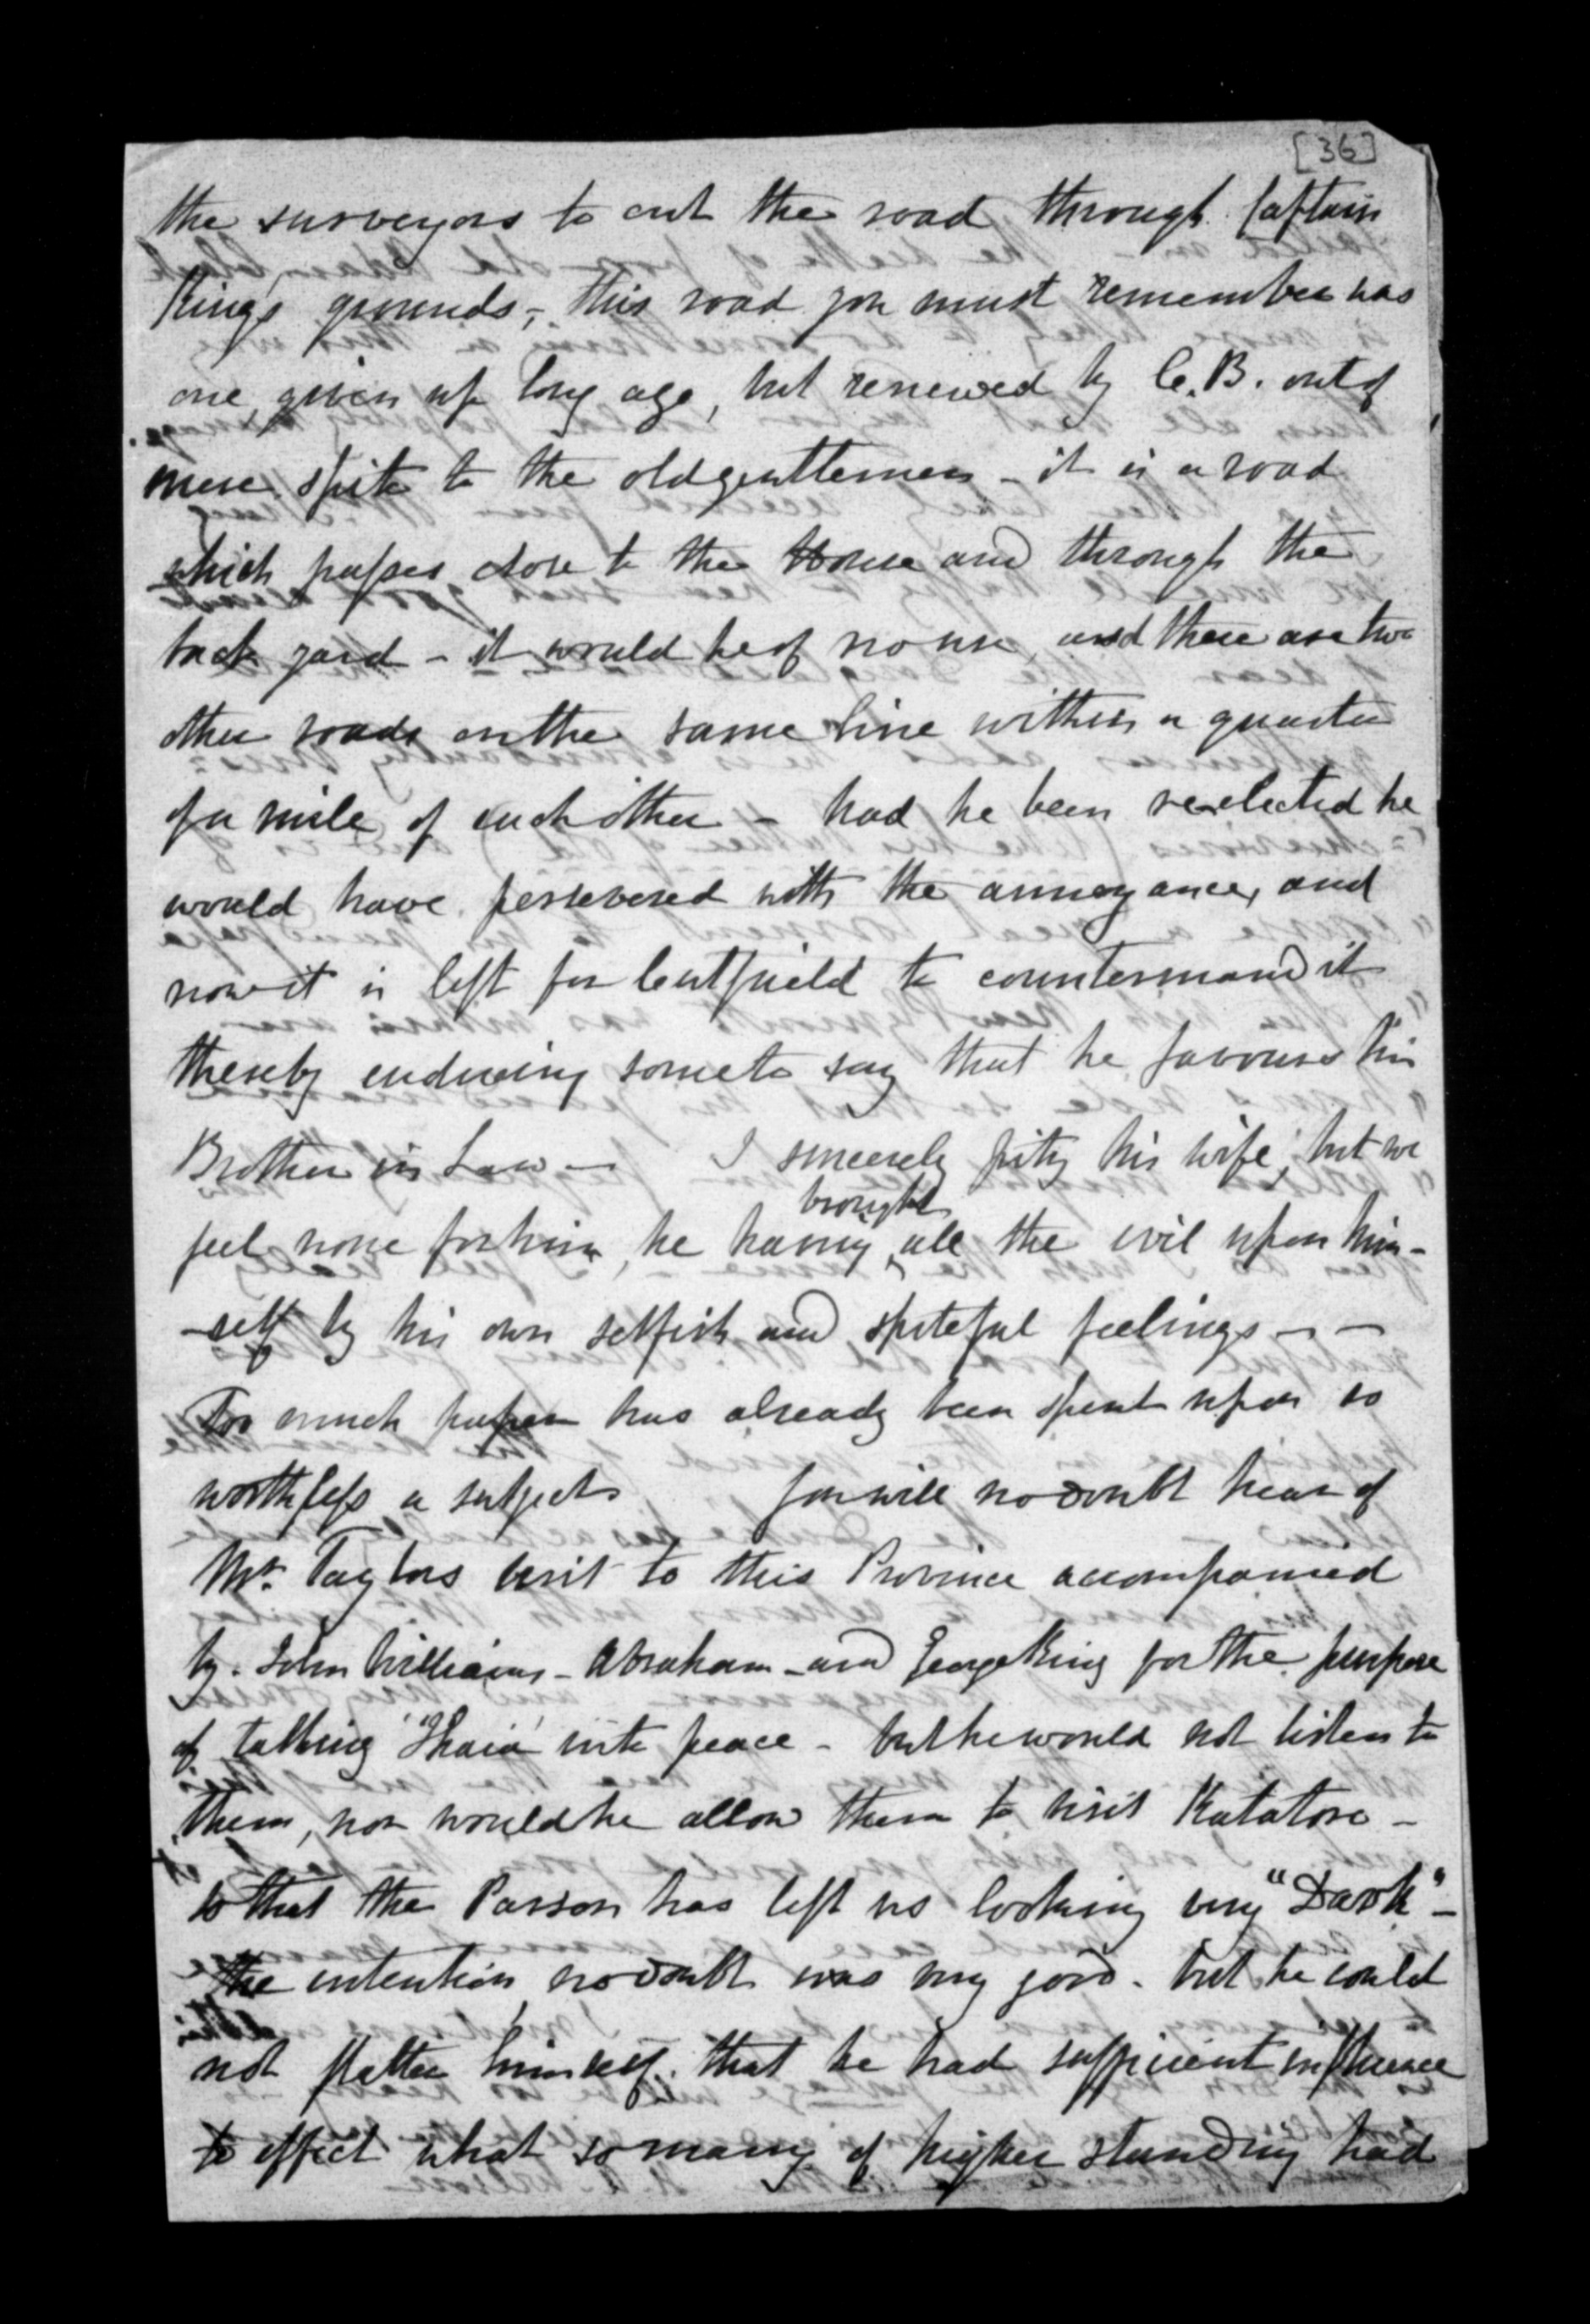 [36]
the surveyors to cut the road through Captain
King's grounds,- this road you must remember was
one given up long ago, but renewed by C.B. out of
mere spite to the old gentleman - it is a road
which passes close to the House and through the
back yard - it would be of no use, and there are two
other roads on the same line within a quarter
of a mile of each other - had he been reelected he
would have persevered with the annoyance, and
now it is left for Cutfield to countermand it
thereby enduring some to say that he favours his
Brother in Law - I sincerely pity his wife, but we
brought
feel none for him, he having all the evil upon him-
-self by his own selfish and spiteful feelings - -
Too much paper has already been spent upon so
worthless a subject You will no doubt hear of
Mr. Taylors visit to this Province accompanied
by John Williams - Abraham - and George King for the purpose
of talking "Ihaia" into peace - but he would not listen to
them, nor would he allow them to visit Katatore -
so that the Parson has left us looking very "Dark" -
the intention no doubt was very good - but he could
not flatter himself that he had sufficient influence
to effect what so many of higher standing had